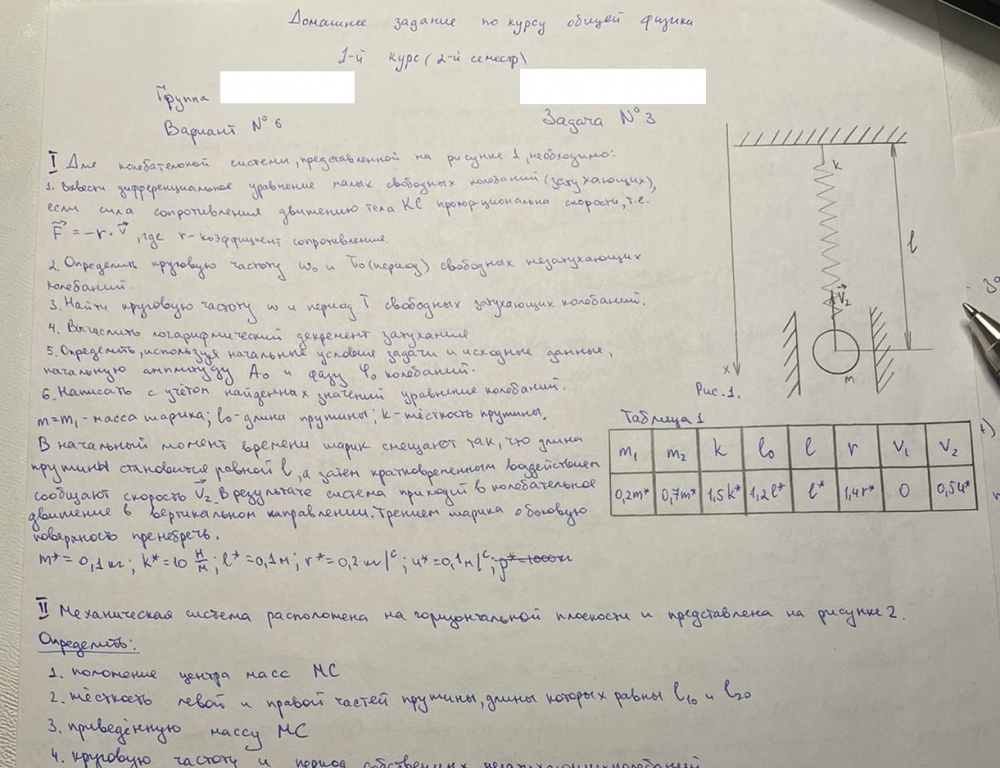 Домашнее задание по курсу общей физики
1-й курс (2-й семестр)
Группа
Вариант № 6
Задача № 3
I Для колебательной системы, представленной на рисунке 1, необходимо:
1. Вывести дифференциальное уравнение малых свободных колебаний (затухающих),
если сила сопротивления движению тела КС пропорциональна скорости, т.е.
F⃗ = -r·v⃗, где r-коэффициент сопротивления.
2. Определить круговую частоту ω₀ и T₀ (период) свободных незатухающих
колебаний.
3. Найти круговую частоту ω и период T свободных затухающих колебаний.
4. Вычислить логарифмический декремент затухания
5. Определить, используя начальные условие задачи и исходные данные,
начальную амплитуду A₀ и фазу φ₀ колебаний.
6. Написать с учётом найденных значений уравнение колебаний.
m=m₁ - масса шарика; l₀-длина пружины; k-жёсткость пружины.
В начальный момент времени шарик смещают так, что длина
пружины становится равной l, а затем кратковременным воздействием
сообщают скорость V⃗₂. В результате система приходит в колебательное
движение в вертикальном направлении. Трением шарика о боковую
поверхность пренебречь.
m* = 0,1 кг; k* = 10 Н/м; l* = 0,1 м; r* = 0,2 кг/с; u* = 0,1 м/с;
k
l
V⃗₂
m
x
Рис. 1.
Таблица 1
m₁ m₂ k l₀ l r V₁ V₂
0,2m* 0,7m* 1,5k* 1,2l* l* 1,4r* 0 0,5u*
II Механическая система расположена на горизонтальной плоскости и представлена на рисунке 2.
Определить:
1. положение центра масс МС
2. жёсткость левой и правой частей пружины, длины которых равны l₁₀ и l₂₀
3. приведённую массу МС
4. круговую частоту и период собственных незатухающих колебаний